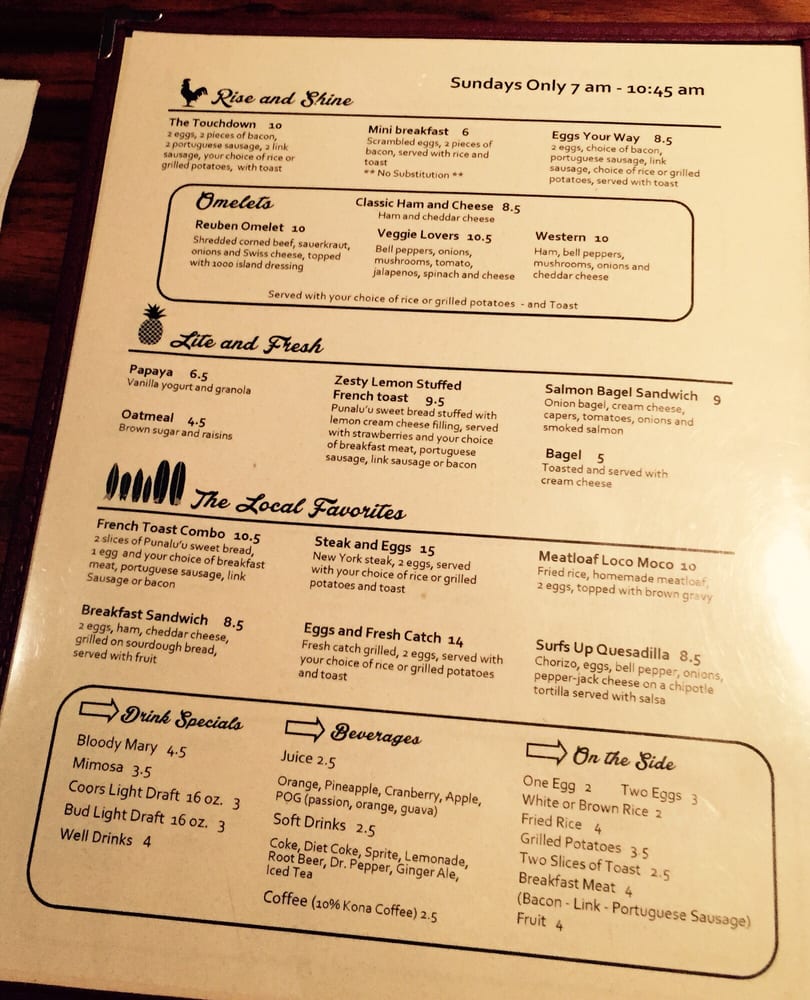 Sundays Only 7 am - 10:45 am
Rise and Shine
The Touchdown 10
2 eggs, 2 pieces of bacon,
2 portuguese sausage, 2 link
sausage, your choice of rice or
grilled potatoes, with toast
Mini breakfast 6
Scrambled eggs, 2 pieces of
bacon, served with rice and
toast
** No Substitution **
Eggs Your Way 8.5
2 eggs, choice of bacon,
portuguese sausage, link
sausage, choice of rice or grilled
potatoes, served with toast
Omelets
Classic Ham and Cheese 8.5
Ham and cheddar cheese
Reuben Omelet 10
Shredded corned beef, sauerkraut,
onions and Swiss cheese, topped
with 1000 island dressing
Veggie Lovers 10.5
Bell peppers, onions,
mushrooms, tomato,
jalapenos, spinach and cheese
Western 10
Ham, bell peppers,
mushrooms, onions and
cheddar cheese
Served with your choice of rice or grilled potatoes - and Toast
Lite and Fresh
Papaya 6.5
Vanilla yogurt and granola
Oatmeal 4.5
Brown sugar and raisins
Zesty Lemon Stuffed
French toast 9.5
Punalu'u sweet bread stuffed with
lemon cream cheese filling, served
with strawberries and your choice
of breakfast meat, portuguese
sausage, link sausage or bacon
Salmon Bagel Sandwich 9
Onion bagel, cream cheese,
capers, tomatoes, onions and
smoked salmon
Bagel 5
Toasted and served with
cream cheese
The Local Favorites
French Toast Combo 10.5
2 slices of Punalu'u sweet bread,
1 egg and your choice of breakfast
meat, portuguese sausage, link
Sausage or bacon
Steak and Eggs 15
New York steak, 2 eggs, served
with your choice of rice or grilled
potatoes and toast
Meatloaf Loco Moco 10
Fried rice, homemade meatloaf,
2 eggs, topped with brown gravy
Breakfast Sandwich 8.5
2 eggs, ham, cheddar cheese,
grilled on sourdough bread,
served with fruit
Eggs and Fresh Catch 14
Fresh catch grilled, 2 eggs, served with
your choice of rice or grilled potatoes
and toast
Surfs Up Quesadilla 8.5
Chorizo, eggs, bell pepper, onions,
pepper-jack cheese on a chipotle
tortilla served with salsa
Drink Specials
Bloody Mary 4.5
Mimosa 3.5
Coors Light Draft 16 oz. 3
Bud Light Draft 16 oz. 3
Well Drinks 4
Beverages
Juice 2.5
Orange, Pineapple, Cranberry, Apple,
POG (passion, orange, guava)
Soft Drinks 2.5
Coke, Diet Coke, Sprite, Lemonade,
Root Beer, Dr. Pepper, Ginger Ale,
Iced Tea
Coffee (10% Kona Coffee) 2.5
On the Side
One Egg 2 Two Eggs 3
White or Brown Rice 2
Fried Rice 4
Grilled Potatoes 3.5
Two Slices of Toast 2.5
Breakfast Meat 4
(Bacon - Link - Portuguese Sausage)
Fruit 4